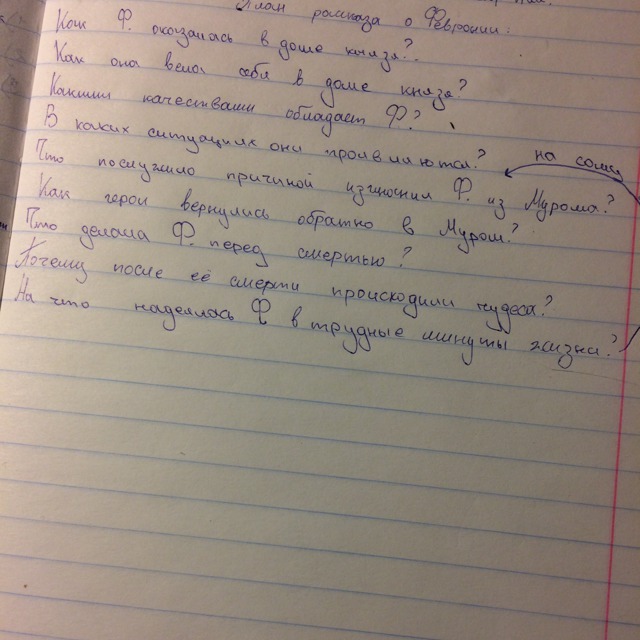 План рассказа о Февронии:
Как Ф. оказалась в доме князя?
Как она вела себя в доме князя?
Какими качествами обладает Ф.?
В каких ситуациях они проявляются?
на
Что послужило причиной изгнания Ф. из Мурома?
Как герои вернулись обратно в Муром?
Что делала Ф. перед смертью?
Почему после её смерти происходили чудеса?
На что надеялась Ф в трудные минуты жизни?